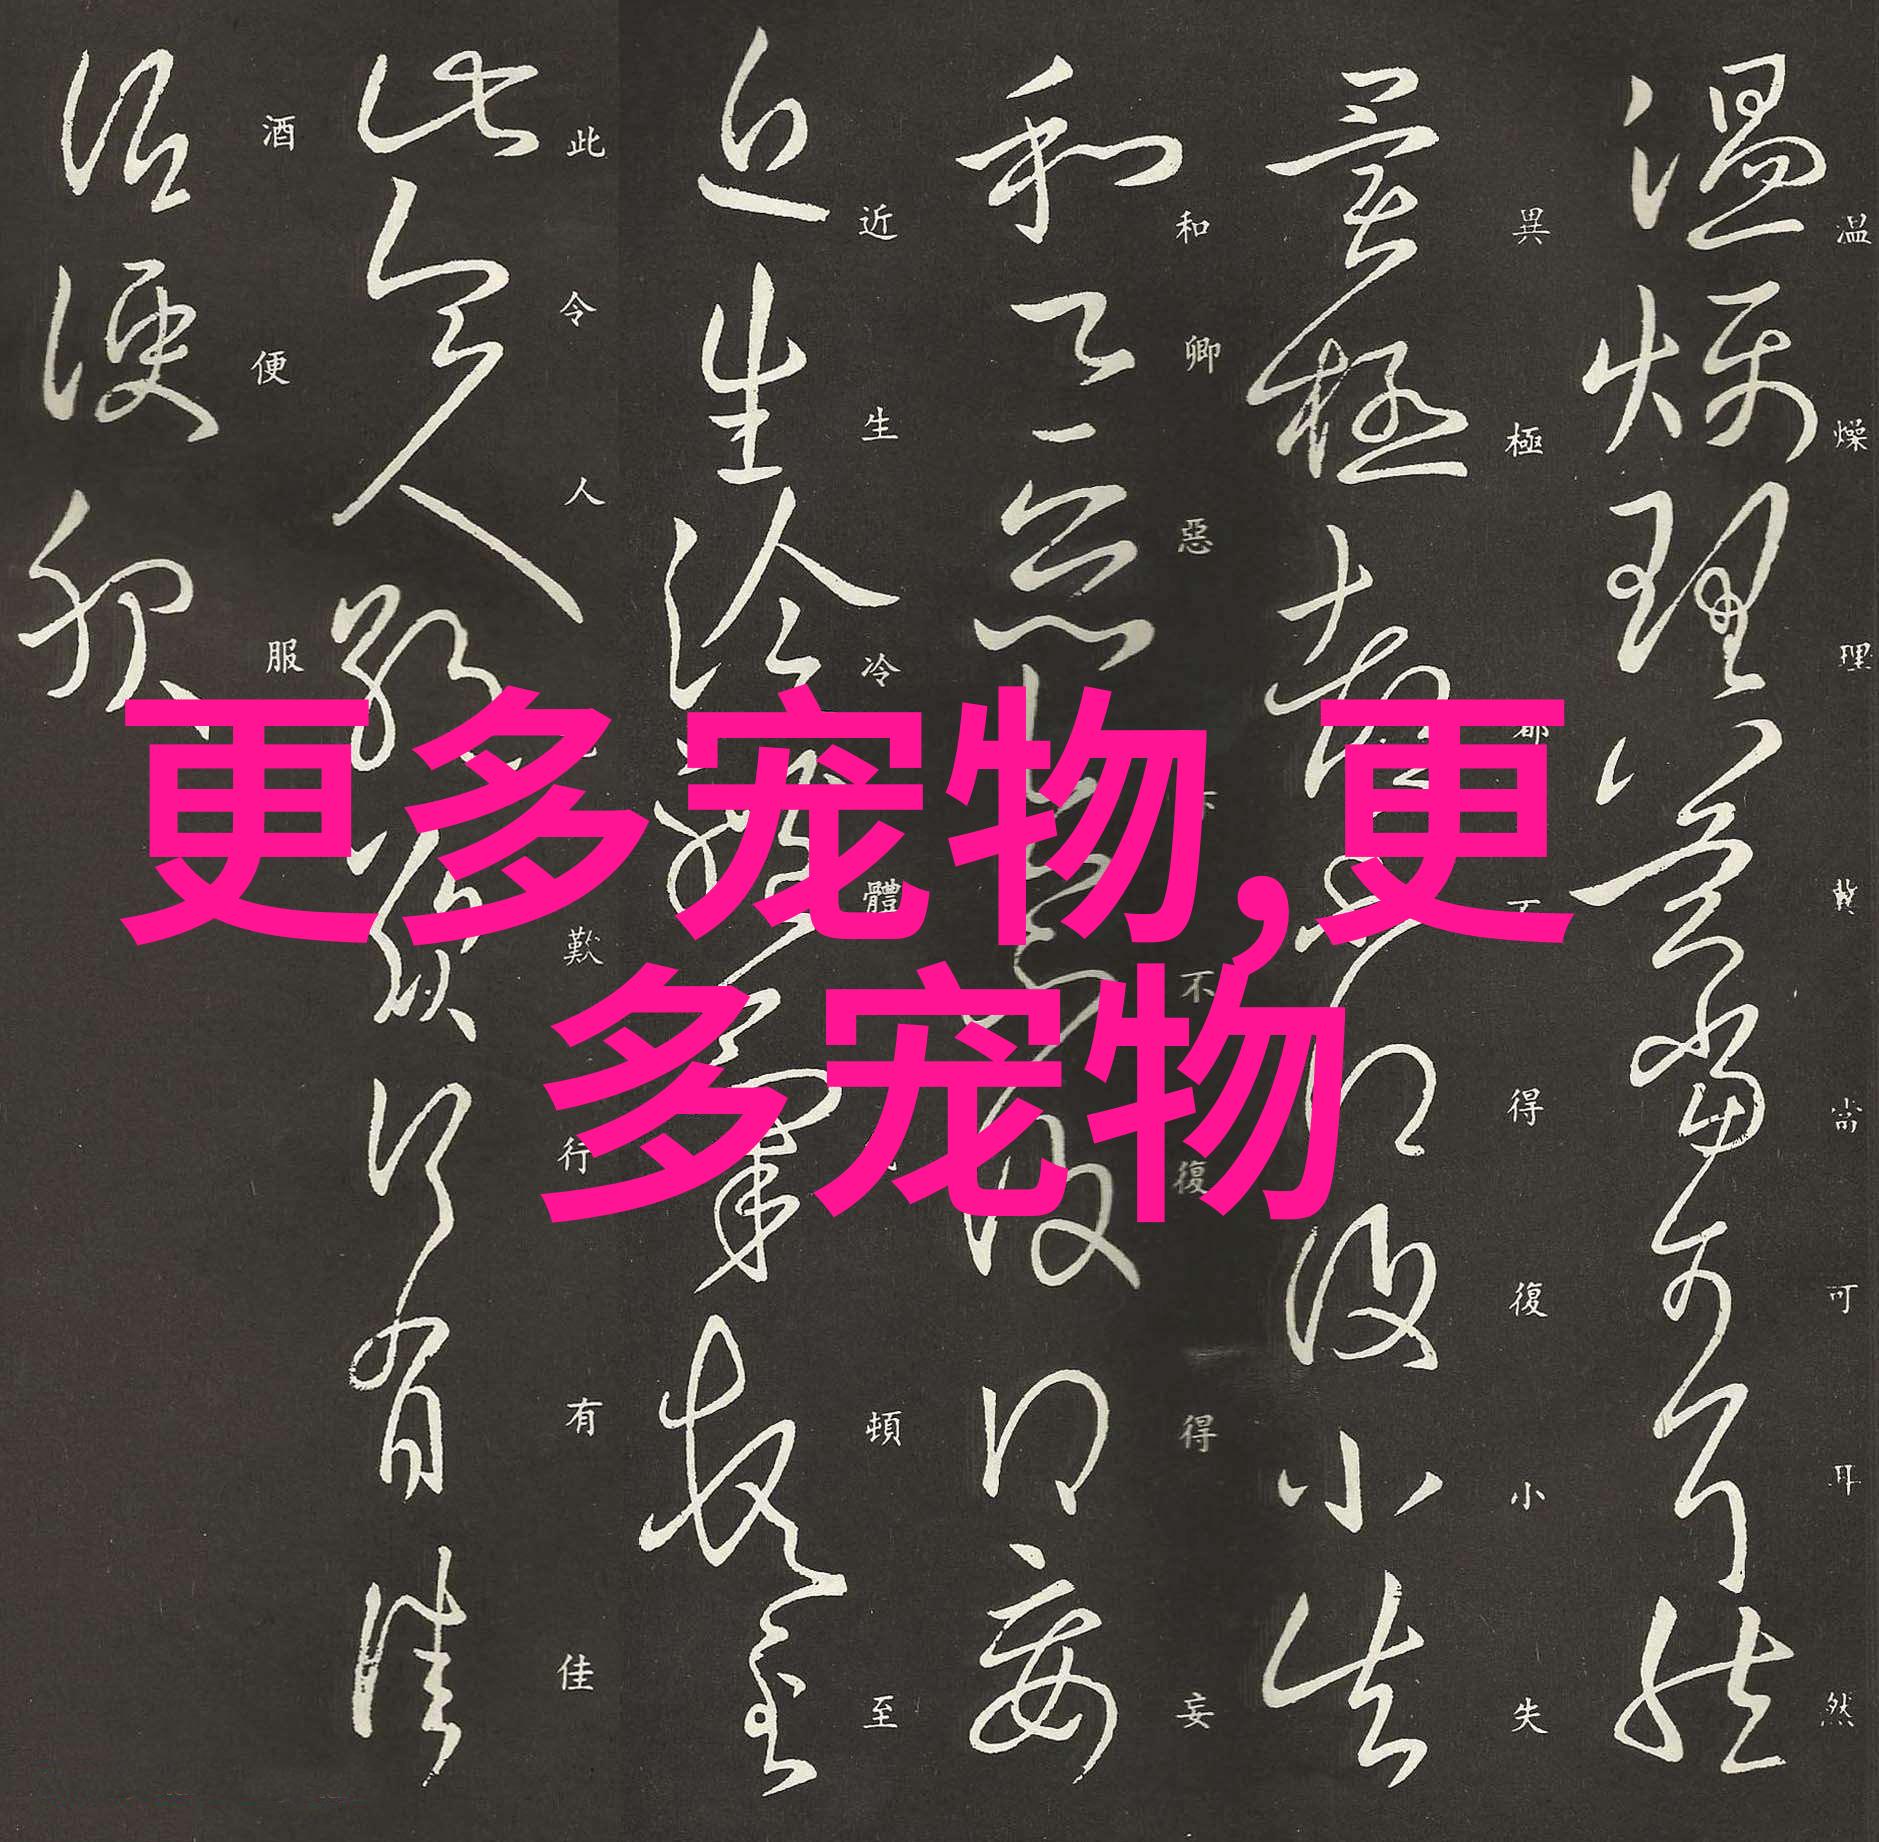 温燥理冀當可耳然
異極都不得復小失
和卿惡不復得妄
近生冷體頓至
此令人歎行有佳
酒便服
更多宠物,更
多宠物